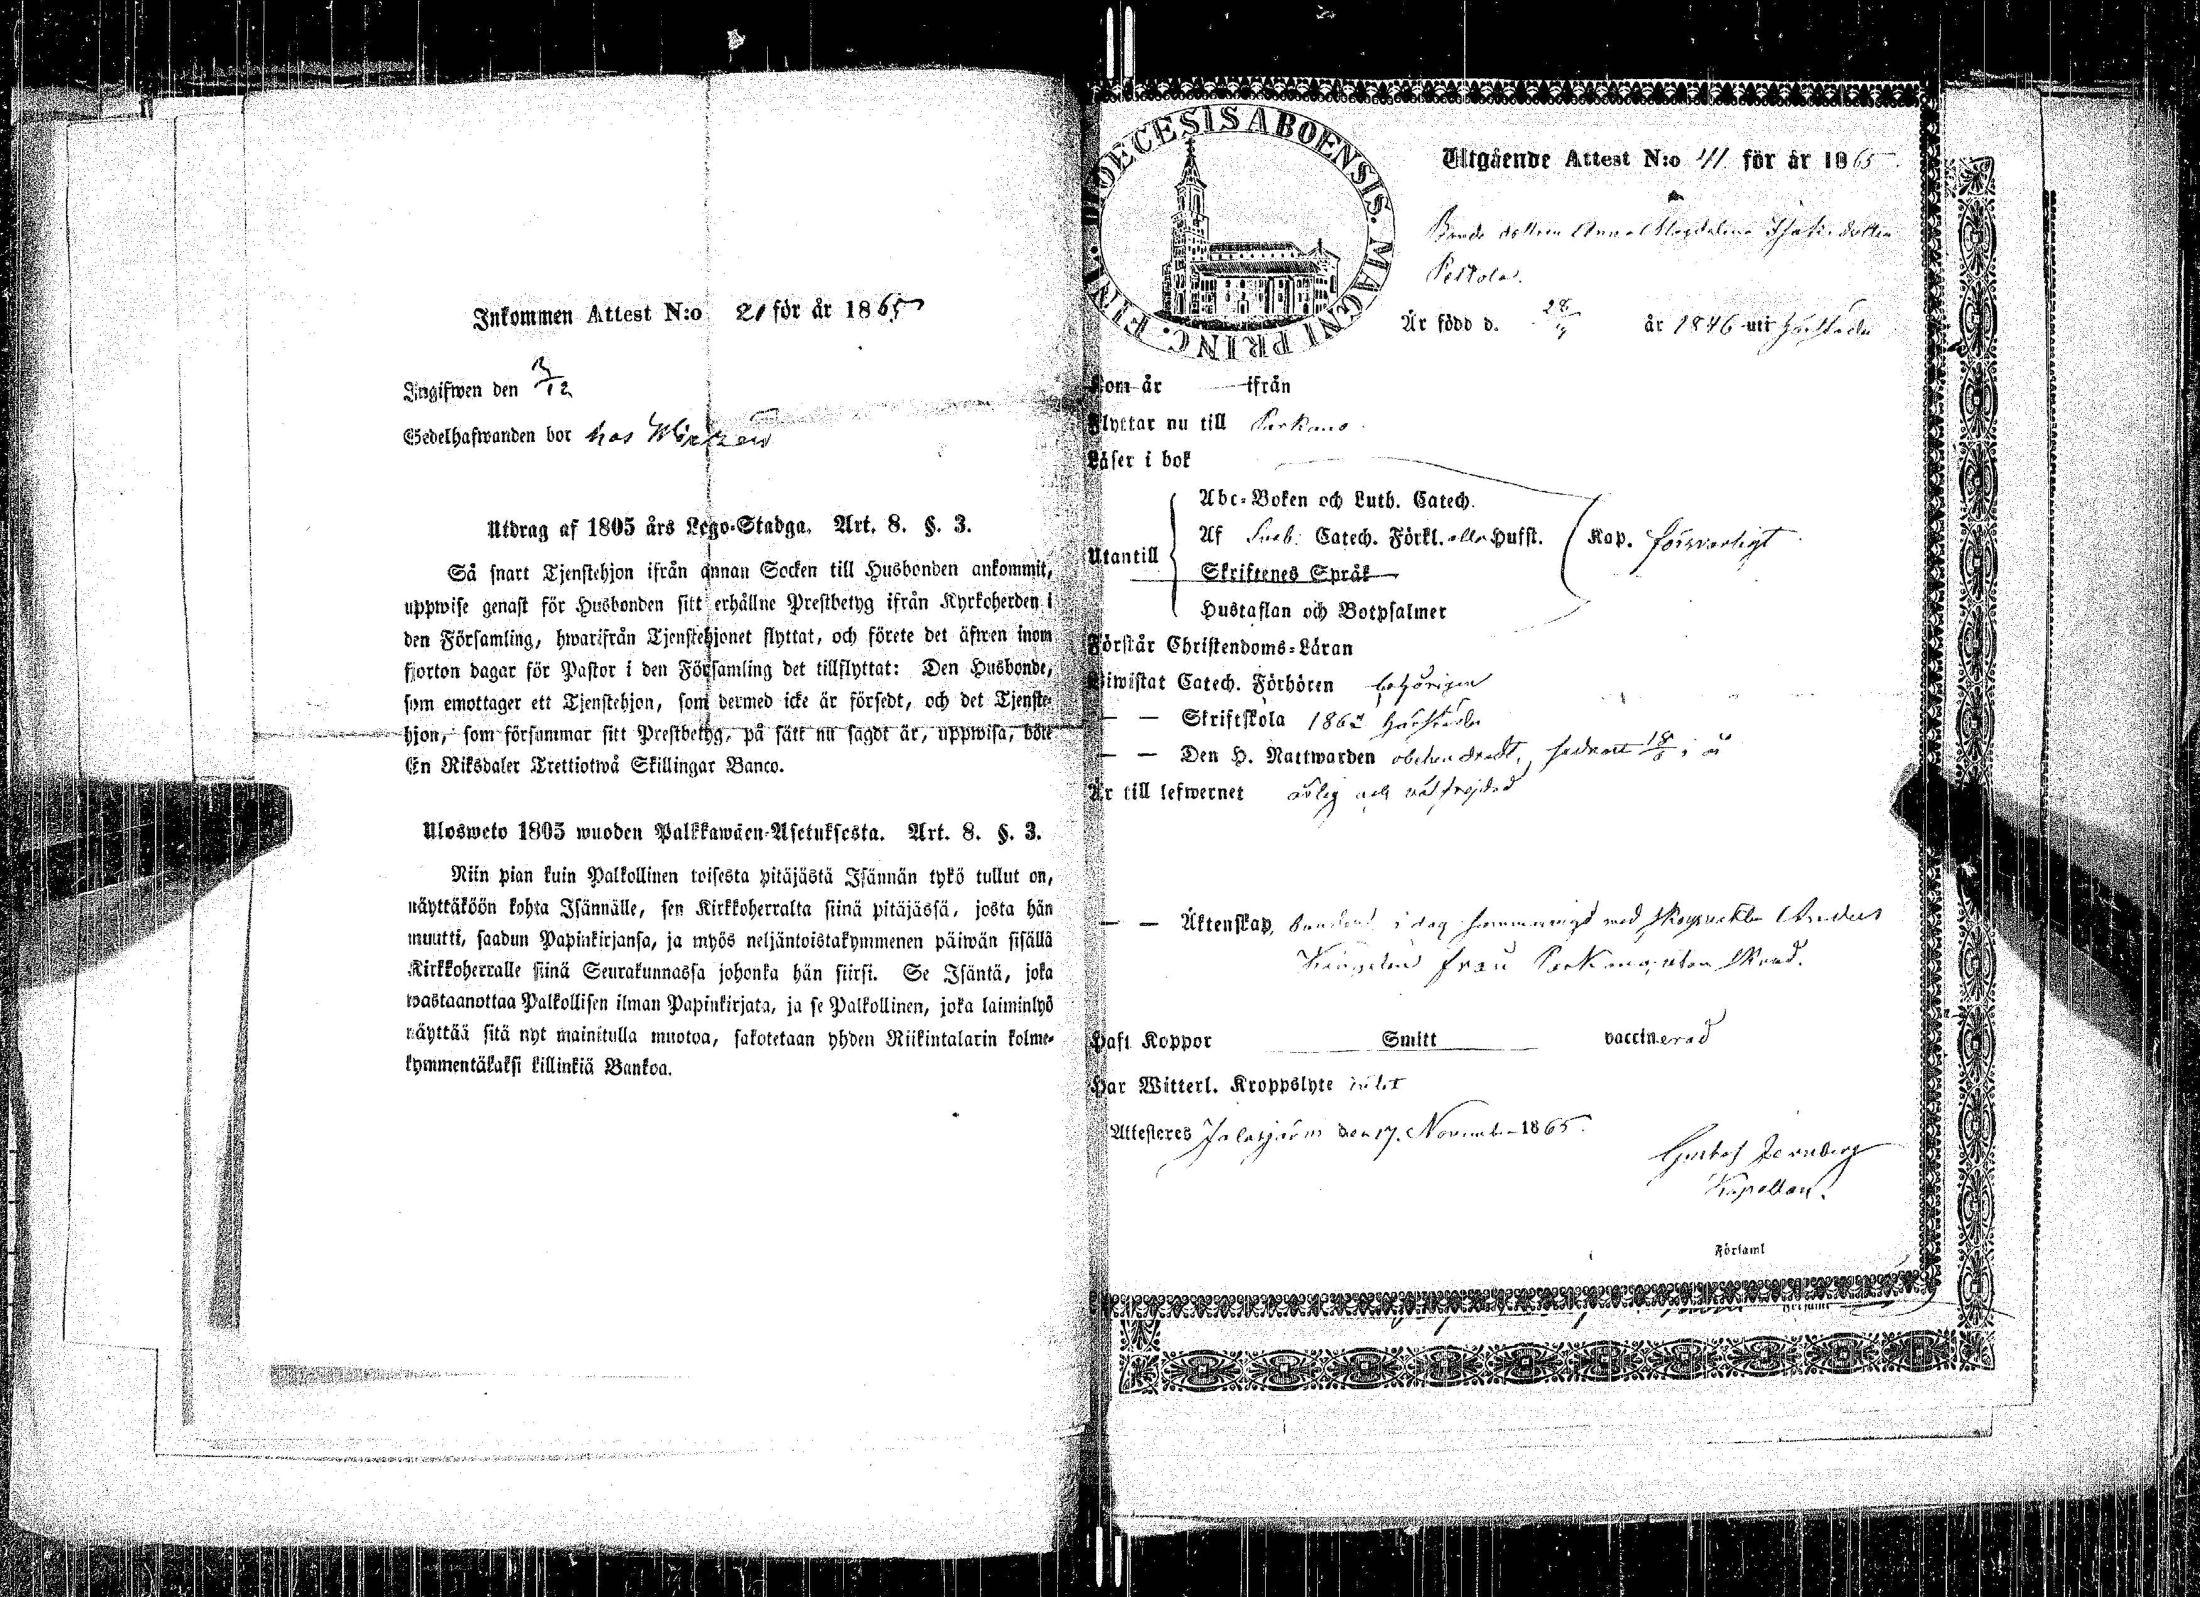 Inkommen Attest N:o 21 för år 1865
Ingifwen den 3/12
Sedelhafwanden bor hos
Utdrag af 1805 års Lego-Stadga. Art. 8. §. 3.
Så snart Tjenstehjon ifrån annan Socken till Husbonden ankommit,
uppwise genast för Husbonden sitt erhållne Prestbetyg ifrån Kyrkoherden i
den Församling, hwarifrån Tjenstehjonet flyttat, och förete det äfwen inom
fjorton dagar för Pastor i den Församling det tillflyttat: Den Husbonde,
som emottager ett Tjenstehjon, som dermed icke är försedt, och det Tjenste-
hjon, som försummar sitt Prestbetyg, på sätt nu sagdt är, uppwisa, böte
En Riksdaler Trettiotwå Skillingar Banco.
Ulosweto 1805 wuoden Palkkawäen-Asetuksesta. Art. 8. §. 3.
Niin pian kuin Palkollinen toisesta pitäjästä Isännän tykö tullut on,
näyttäköön kohta Isännälle, sen Kirkkoherralta siinä pitäjässä, josta hän
muutti, saadun Papinkirjansa, ja myös neljäntoistakymmenen päiwän sisällä
Kirkkoherralle siinä Seurakunnassa johonka hän siirsi. Se Isäntä, joka
wastaanottaa Palkollisen ilman Papinkirjata, ja se Palkollinen, joka laiminlyö
näyttää sitä nyt mainitulla muotoa, sakotetaan yhden Riikintalarin kolme-
kymmentäkaksi killinkiä Bankoa.
DIOECESIS ABOENSIS. MAGNI PRINC. FINL.
Utgående Attest N:o 41 för år 1865
Bonde dottren Anna Magdalena
Är född d. 28 år 1846 uti
Kom år ifrån
Flyttar nu till Parkano.
Läser i bok
Abc-Boken och Luth. Catech.
Utantill Af Sveb. Catech. Förkl. alla Hufst. Kap. försvarligt
Skriftenes Språk
Hustaflan och Botpsalmer
Förstår Christendoms-Läran
Biwistat Catech. Förhören behörigen
— — Skriftskola 1862
— — Den H. Nattwarden obehindradt, sednast
Är till lefwernet ärlig och välfrejdad
— — Äktenskap, i dag med Anders
från Parkano, utan
Haft Koppor Smitt vaccinerad
Har Witterl. Kroppslyte intet
Attesteras Jalasjärvi den 17. November 1865.
Gustaf Jernberg
Kapellan.
Församl